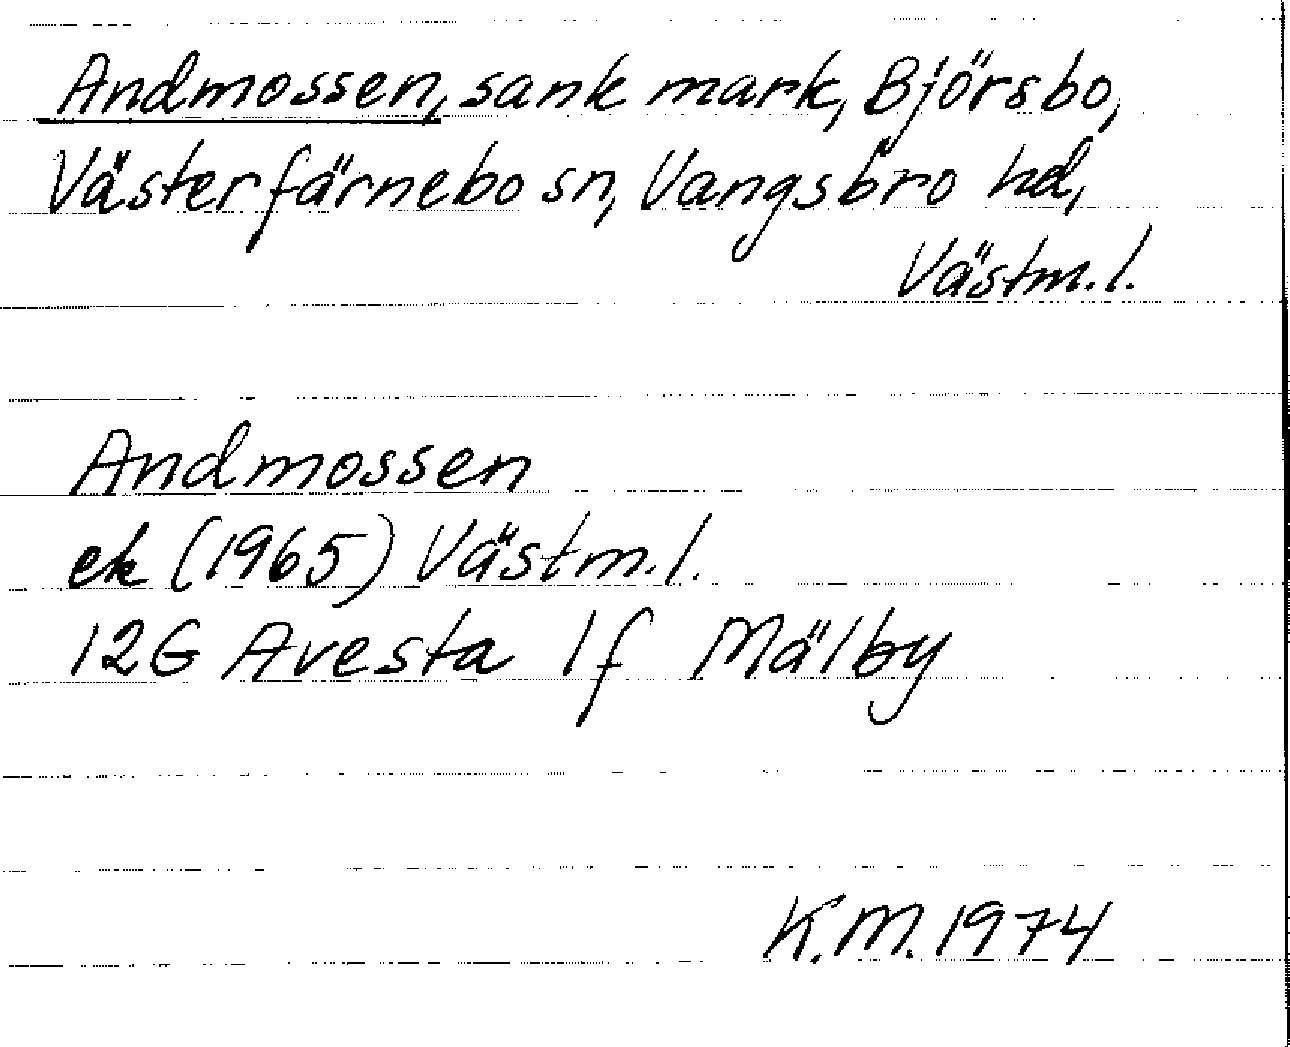 Andmossen, sank mark, Björsbo,
Västerfärnebo sn, Vangsbro hd,
Västm.l.
Andmossen
ek (1965) Västm.l.
12G Avesta 1f Mälby
K.M. 1974